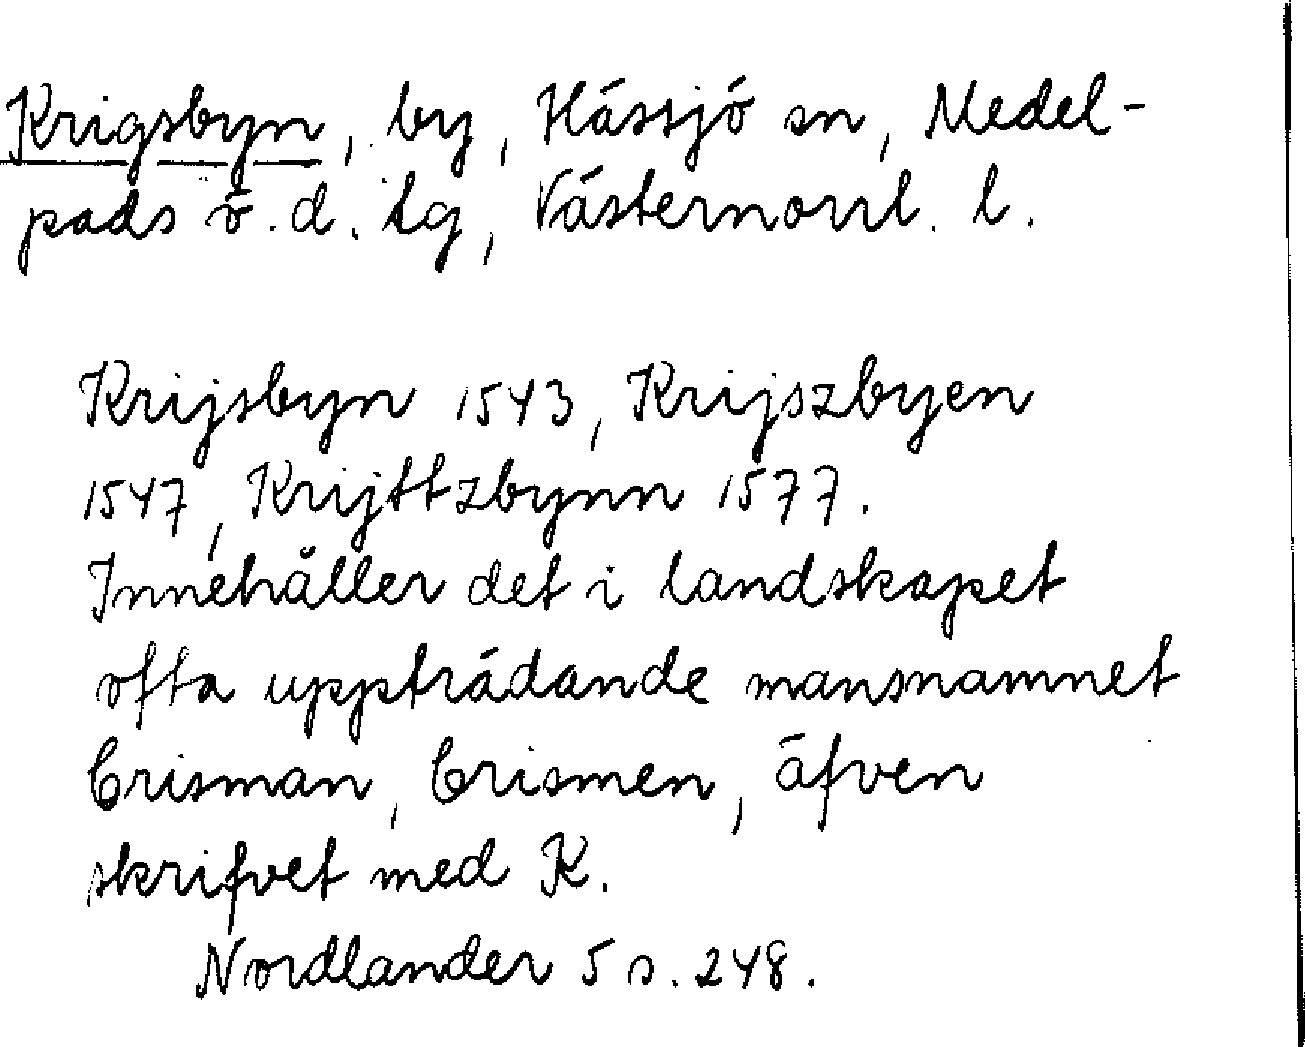 Krigsbyn, by, Hässjö sn, Medel-
pads ö. d. tg, Västernorrl. l.
Krijsbyn 1543, Krijszbyen
1547, Krijttzbynn 1577.
Innehåller det i landskapet
ofta uppträdande mansnamnet
Crisman, Crismen, äfven
skrifvet med K.
Nordlander 5 s. 248.